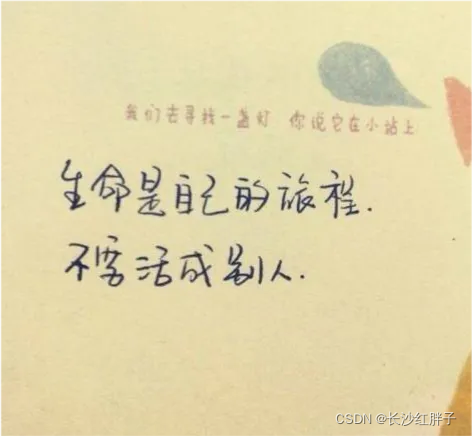 我们去寻找一盏灯 你说它在小站上
生命是自己的旅程.
不要活成别人.
CSDN @长沙红胖子